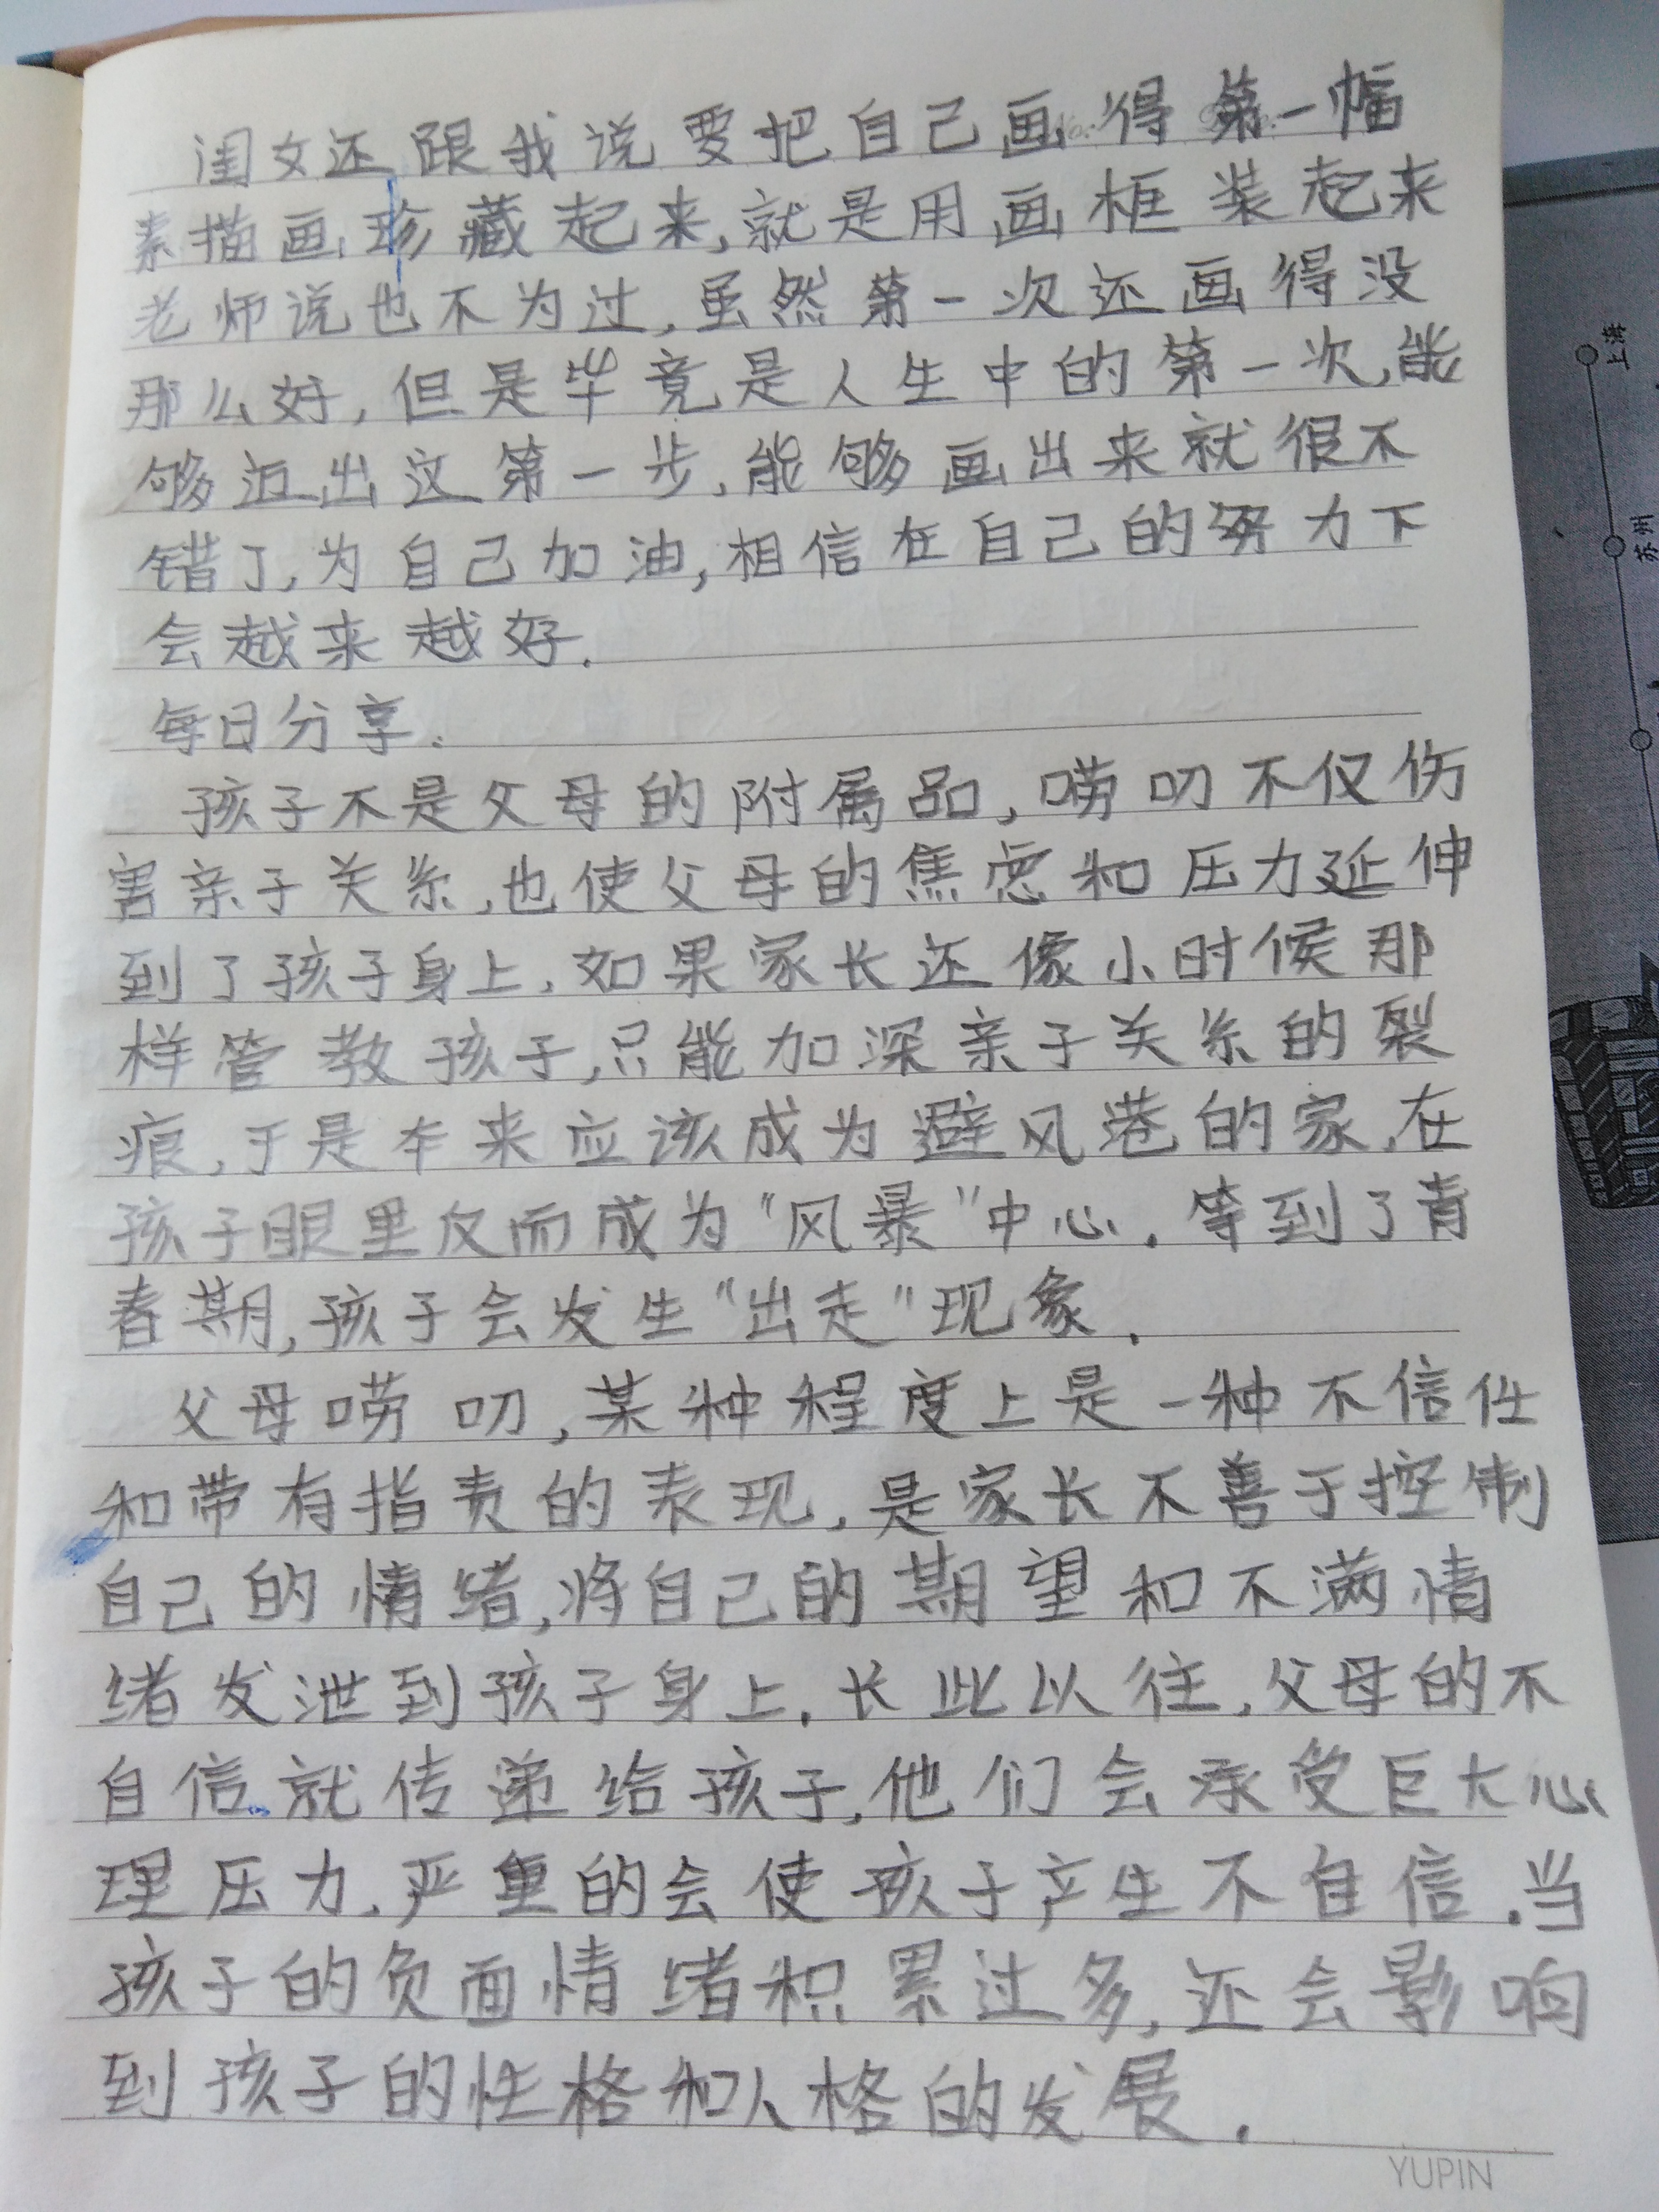 闺女还跟我说要把自己画得第一幅
素描画珍藏起来,就是用画框装起来
老师说也不为过,虽然第一次还画得没
那么好,但是毕竟是人生中的第一次,能
够迈出这第一步,能够画出来就很不
错了,为自己加油,相信在自己的努力下
会越来越好.
每日分享.
孩子不是父母的附属品,唠叨不仅伤
害亲子关系,也使父母的焦虑和压力延伸
到了孩子身上.如果家长还像小时候那
样管教孩子,只能加深亲子关系的裂
痕,于是本来应该成为避风港的家,在
孩子眼里反而成为"风暴"中心.等到了青
春期,孩子会发生"出走"现象.
父母唠叨,某种程度上是一种不信任
和带有指责的表现,是家长不善于控制
自己的情绪,将自己的期望和不满情
绪发泄到孩子身上.长此以往,父母的不
自信就传递给孩子,他们会承受巨大心
理压力.严重的会使孩子产生不自信.当
孩子的负面情绪积累过多,还会影响
到孩子的性格和人格的发展.
YUPIN
上海
苏州